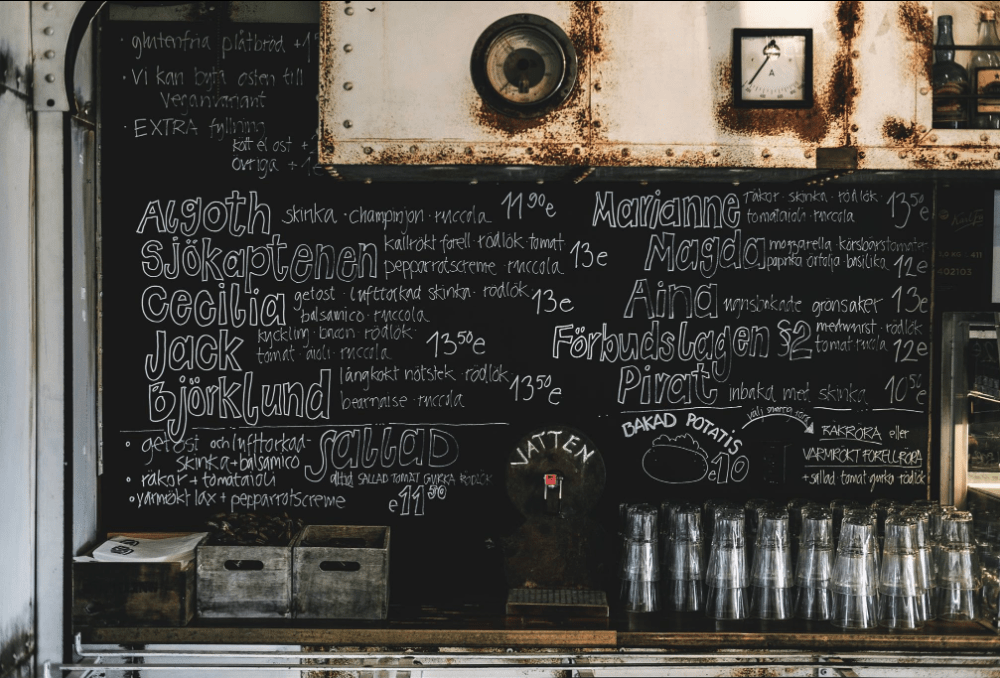 · glutenfria plåtbröd +1
· Vi kan byta osten till
veganvariant
· EXTRA fyllning
kött el ost +
övriga +
Algoth skinka · champinjon · ruccola 11⁹⁰e
Sjökaptenen kallrökt forell · rödlök · tomat
pepparrotscreme · ruccola 13e
Cecilia getost · lufttorkad skinka · rödlök
balsamico · ruccola 13e
Jack kyckling · bacon · rödlök
tomat · aioli · ruccola 13⁵⁰e
Björklund långkokt nötstek · rödlök
bearnaise · ruccola 13⁵⁰e
Marianne räkor · skinka · rödlök
tomataioli · ruccola 13⁵⁰e
Magda mozzarella · körsbärstomater
paprika · örtolja · basilika 12e
Aina ugnsbakade grönsaker 13e
Förbudslagen §2 medwurst · rödlök
tomat · ruccola 12e
Pirat inbakad met skinka 10⁵⁰e
· getost och lufttorkad-
skinka + balsamico
· räkor + tomataioli
· varmrökt lax + pepparrotscreme
Sallad
alltid SALLAD TOMAT GURKA RÖDLÖK
e 11⁵⁰
VATTEN
BAKAD POTATIS
e10
RÄKRÖRA eller
VARMRÖKT FORELLRÖRA
+ sallad tomat gurka rödlök